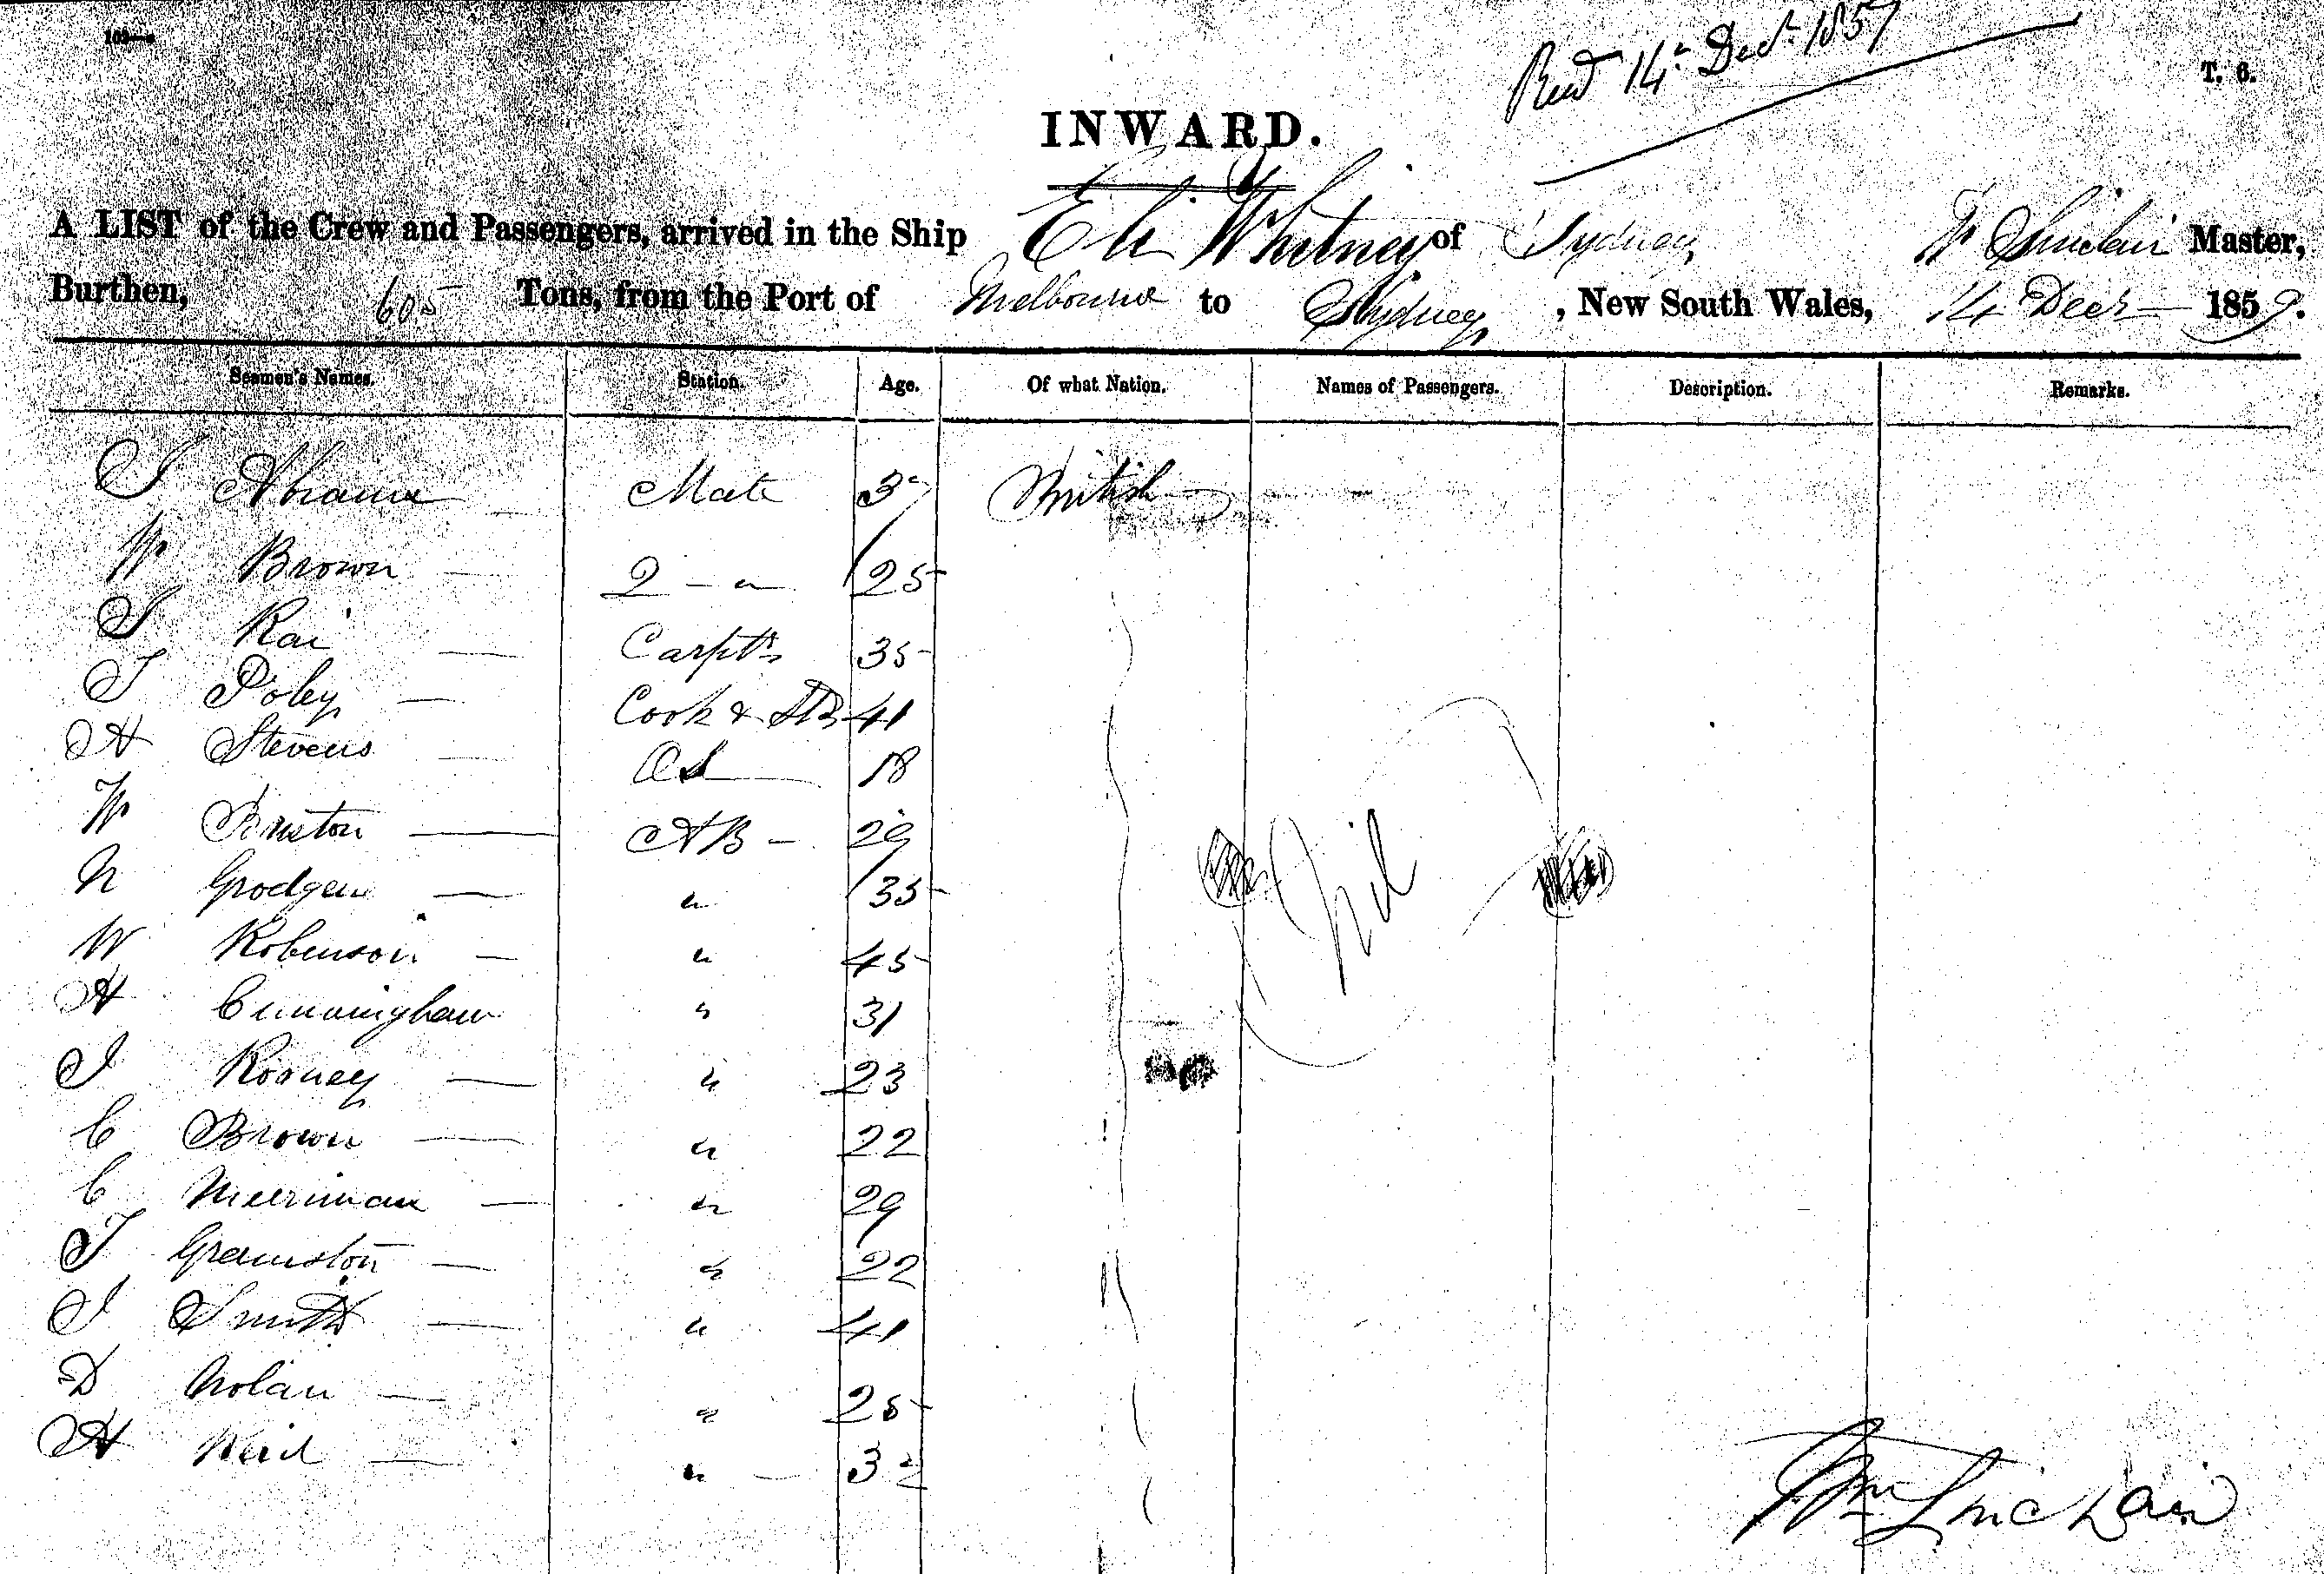 103—a
Recd 14th Decr 1859
T. 6.
INWARD.
A LIST of the Crew and Passengers, arrived in the Ship Eli Whitney of Sydney W Sinclair Master,
Burthen, 605 Tons, from the Port of Melbourne to Sydney, New South Wales, 14 Decr 1859.
Seamen's Names. Station. Age. Of what Nation. Names of Passengers. Description. Remarks.
J Mate British
W Brown — 2 - " 25
J Rai — Carptr 35
J Poley — Cook & 41
A Stevens — OS — 18
W — AB — 29
N — " 35
W Robinson — " 45
A Cunningham " 31
J Rooney — " 23
C Brown — " 22
C Merriman — " 29
J — " 22
J Smith — " 41
D Nolan — " 25
A — " — 32
Nil
Wm Sinclair